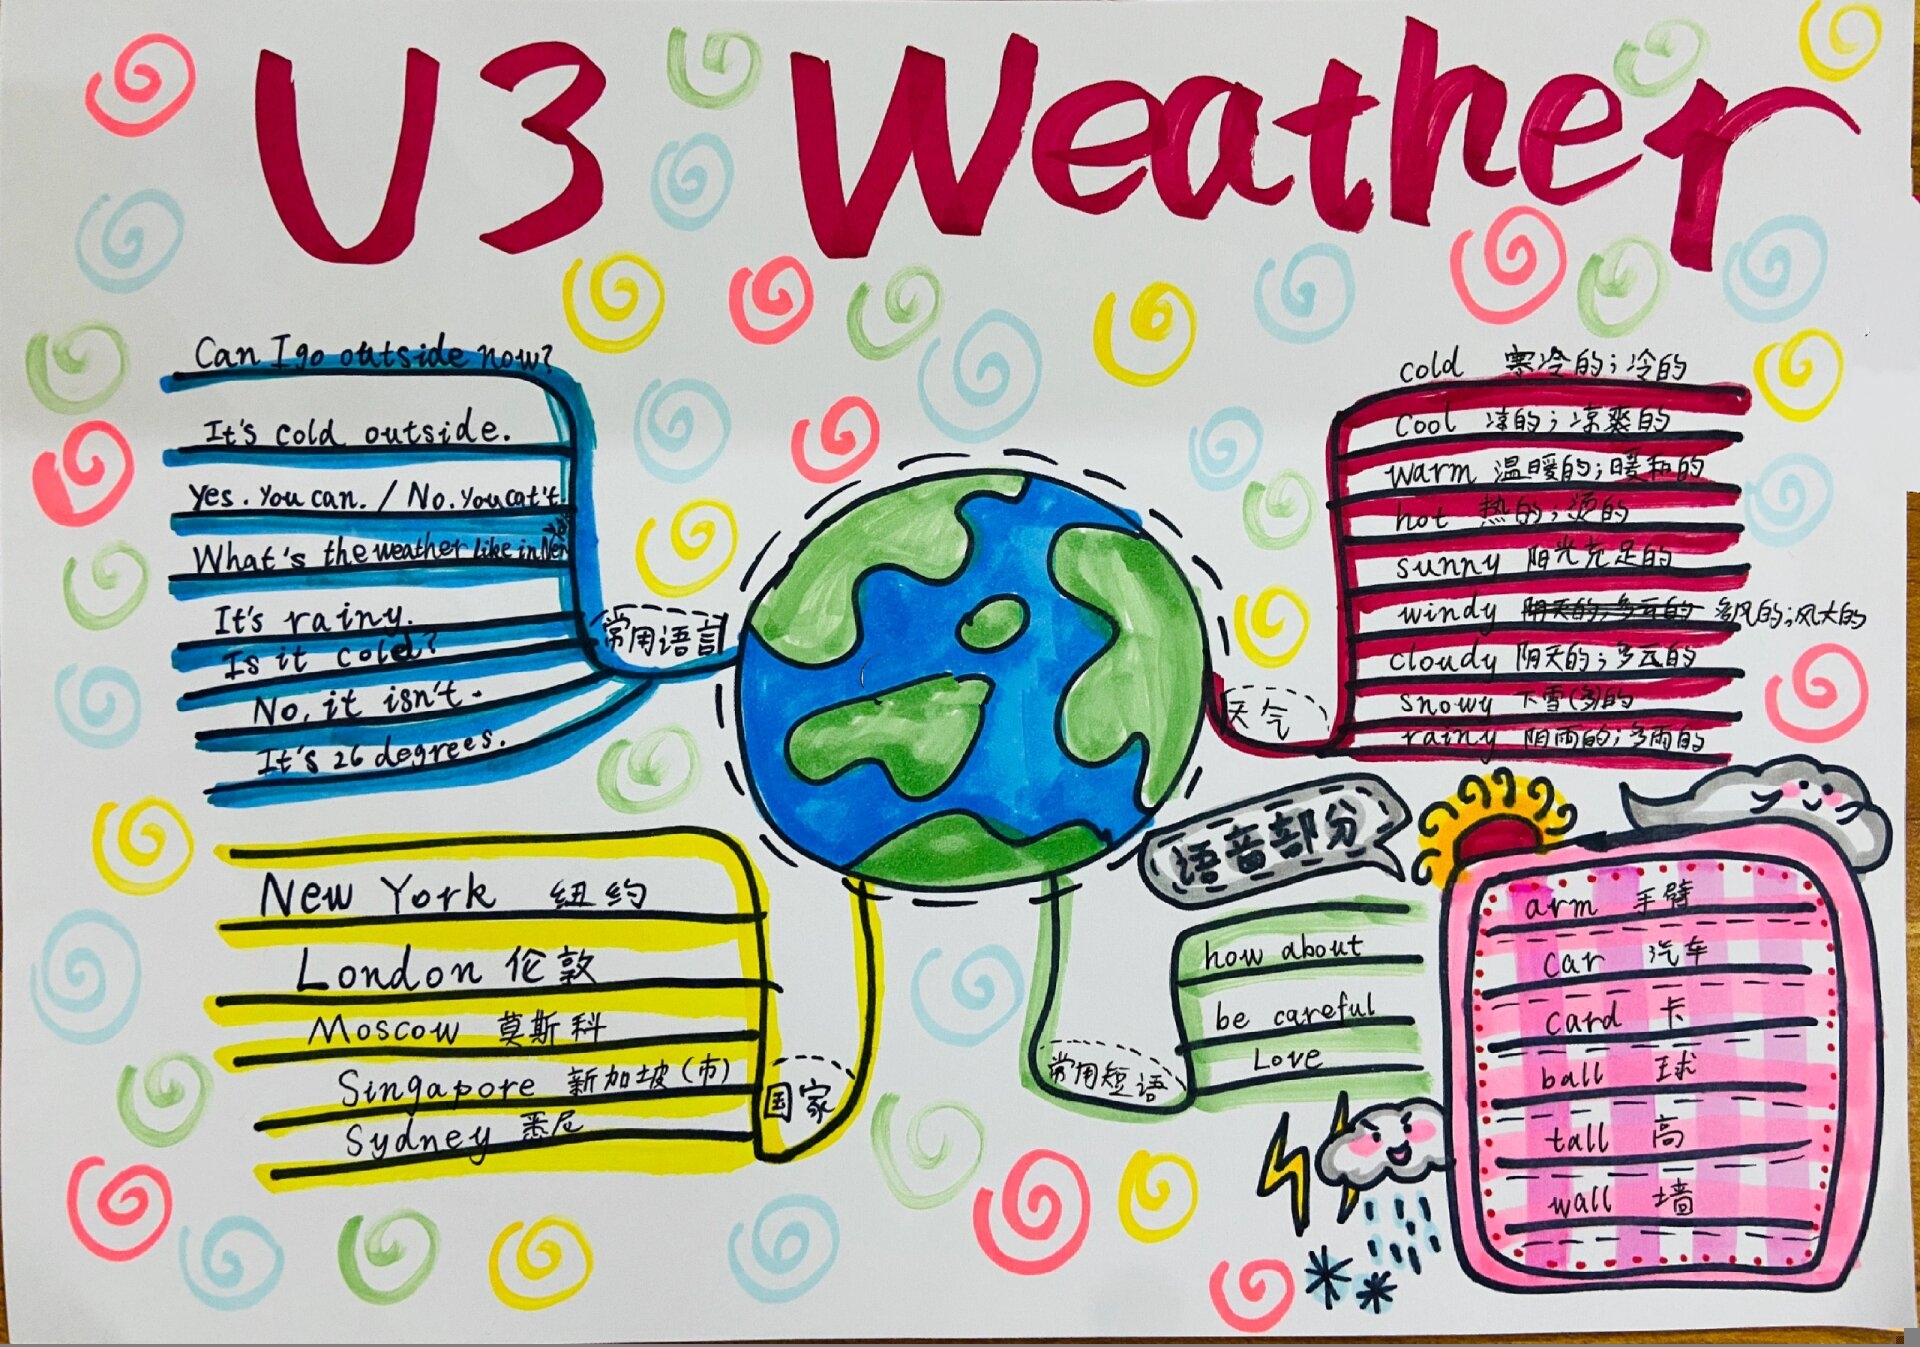 U3 Weather
Can I go outside now?
It's cold outside.
Yes. You can. / No. You cat't.
What's the weather like in New
It's rainy.
Is it cold?
No, it isn't.
It's 26 degrees.
常用语言
cold 寒冷的；冷的
cool 凉的；凉爽的
warm 温暖的；暖和的
hot 热的；烫的
sunny 阳光充足的
windy 阴天的；多云的 多风的；风大的
cloudy 阴天的；多云的
snowy 下雪(多)的
rainy 阴雨的；多雨的
天气
New York 纽约
London 伦敦
Moscow 莫斯科
Singapore 新加坡（市）
Sydney 悉尼
国家
how about
be careful
Love
常用短语
语音部分
arm 手臂
car 汽车
card 卡
ball 球
tall 高
wall 墙